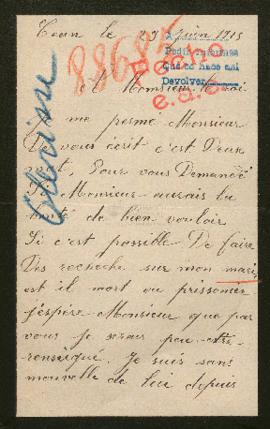 le 29 Juin 1915
88684
Pedir
Que se hace así
Devolver
Monsieur le roi
me permé Monsieur
De vous écrit c'est Deux
Pour vous Demandé
Si Monsieur aurais la
bonté de bien vouloir
Si c'est possible De faire
Des recheche sur mon mari
est il mort ou prisonier
j'espère Monsieur que par
vous je serais peu être
renseigué. Je suis sans
nouvelle de lui depuis